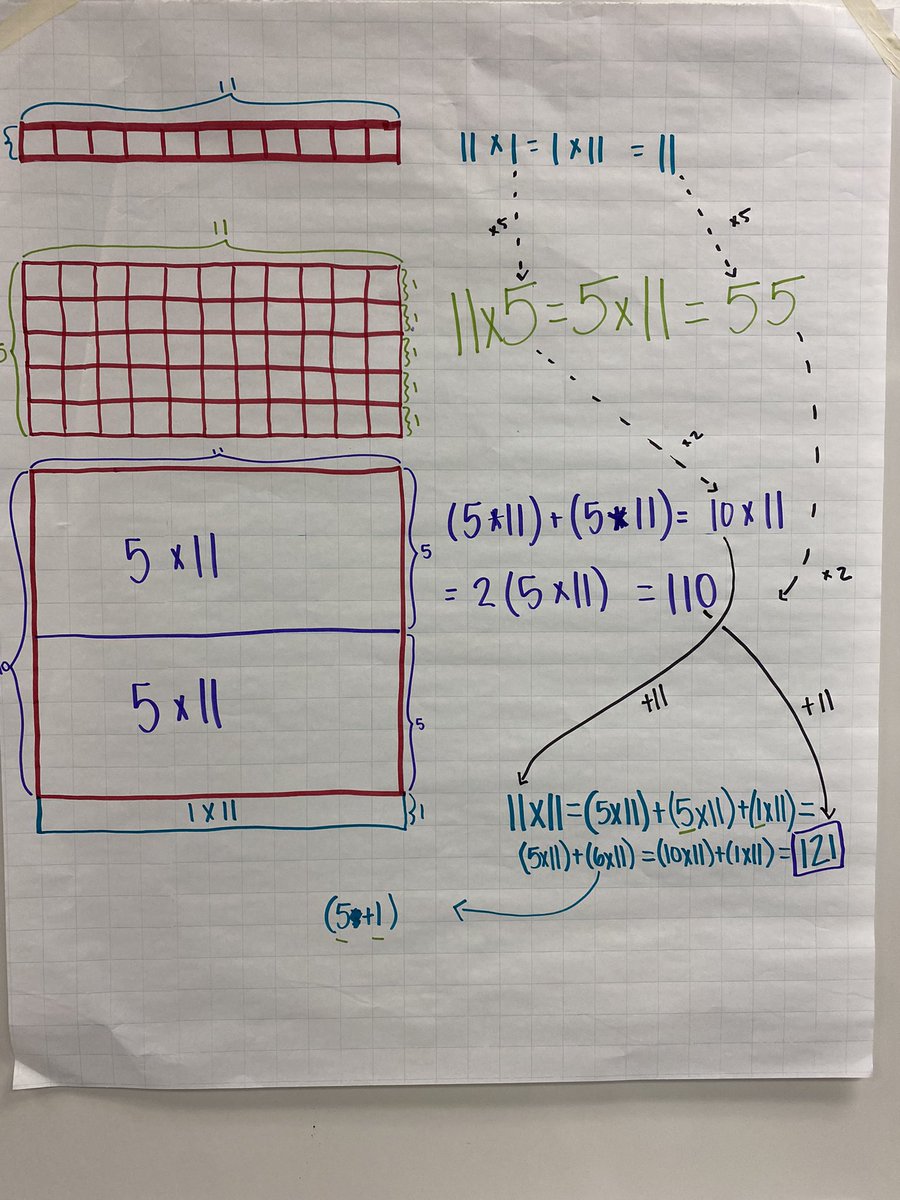 11
11 x 1 = 1 x 11 = 11
x5
x5
11
5
1
1
1
1
1
11 x 5 = 5 x 11 = 55
x2
x2
11
5 x 11
5
(5 x 11) + (5 x 11) = 10 x 11
= 2 (5 x 11) = 110
5 x 11
5
+11
+11
1 x 11
1
11 x 11 = (5 x 11) + (5 x 11) + (1 x 11) =
(5 x 11) + (6 x 11) = (10 x 11) + (1 x 11) = 121
(5 + 1)